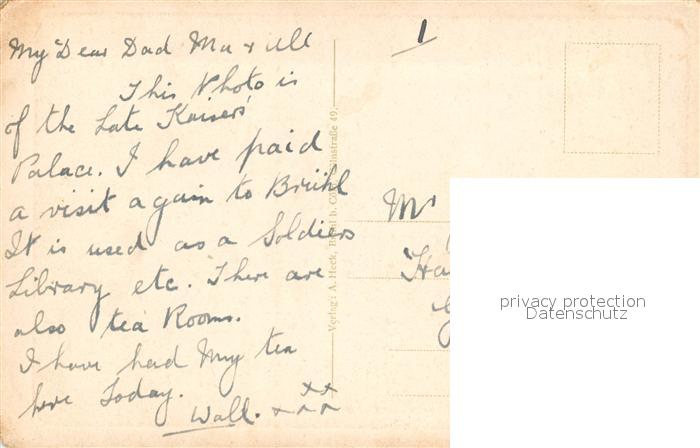 My Dear Dad Ma & All
This Photo is
of the Late Kaisers'
Palace. I have paid
a visit again to Brühl
It is used as a Soldiers
Library etc. There are
also tea Rooms.
I have had My tea
here Today.
Wall. xxxxx
1
Verlag: A. Heck, Brühl b. 49.
Mr
privacy protection
Datenschutz